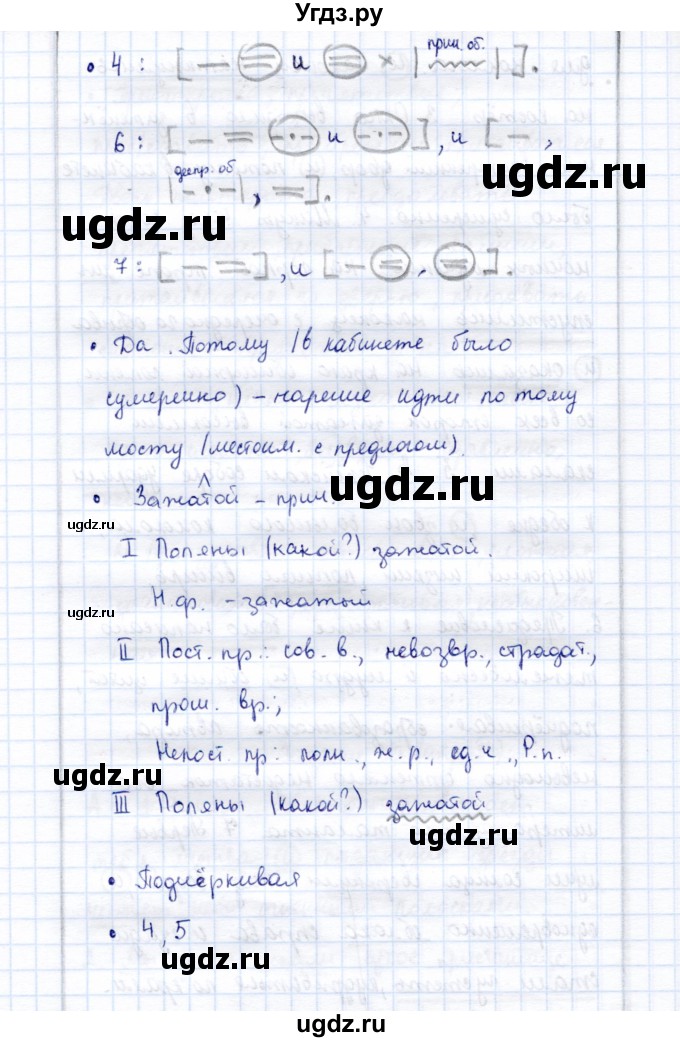 Угдз.ру
• 4 : [ — = и = × | прич. об. | ].
6 : [ — = — · — и — · — ], и [ — ,
деепр. об
| — · — |, = ].
ugdz.ru
ugdz.ru
7 : [ — = ], и [ — =, = ].
• Да. Потому (в кабинете было
сумеречно) – наречие идти по тому
мосту (местоим. с предлогом).
• Зажатой – прич.
ugdz.ru
ugdz.ru
I Поляны (какой?) зажатой.
Н.ф. – зажатый
ugdz.ru
II Пост. пр.: сов. в., невозвр., страдат.,
прош. вр.;
Непост. пр: полн., ж.р., ед.ч., Р.п.
ugdz.ru
III Поляны (какой?) зажатой
ugdz.ru
• Подчёркивая
• 4, 5
ugdz.ru
ugdz.ru
ugdz.ru